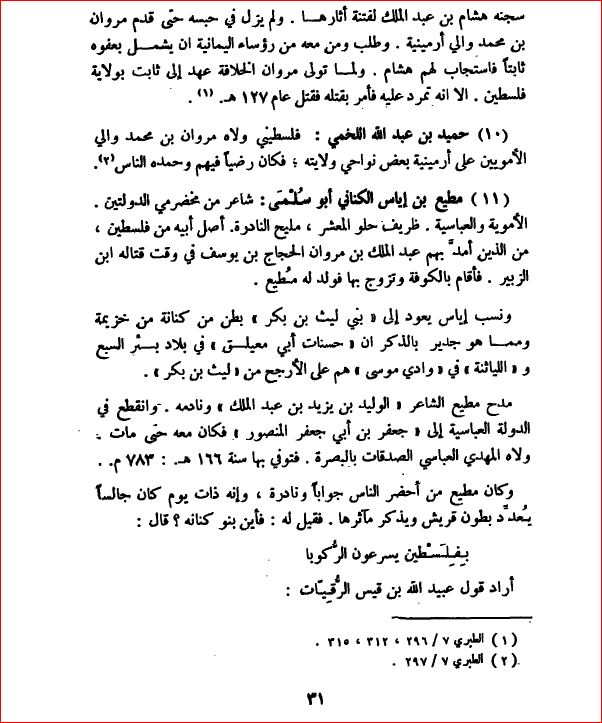 سجنه هشام بن عبد الملك لفتنة أثارهــا . ولم يزل في حبسه حتى قدم مروان
بن محمد والي أرمينية . وطلب ومن معه من رؤساء اليمانية ان يشمــل بعفوه
ثابتاً فاستجاب لهم هشام . ولمــا تولى مروان الخلافة عهد إلى ثابت بولاية
فلسطين . الا انه تمرد عليه فأمر بقتله فقتل عام ١٢٧ هـ. (١) .
(١٠) حميد بن عبد الله اللخمي : فلسطيني ولاه مروان بن محمد والي
الأمويين على أرمينية بعض نواحي ولايته ؛ فكان رضياً فيهم وحمده الناس(٢).
(١١) مطيع بن إياس الكناني أبو سُلْمَى : شاعر من مخضرمي الدولتين .
الأموية والعباسية . ظريف حلو المعشر ، مليح النادرة. أصل أبيه من فلسطين ،
من الذين أمدَّ بهم عبد الملك بن مروان الحجاج بن يوسف في وقت قتاله ابن
الزبير . فأقام بالكوفة وتزوج بها فولد له مُطيع .
ونسب إياس يعود إلى « بَني ليث بن بكر » بطن من كنانة من خزيمة
وممــا هو جدير بالذكر ان « حسنات أبي معيلــق » في بلاد بــئر السبع
و « اللياثنة » في « وادي موسى » هم على الأرجح من « ليث بن بكر » .
مدح مطيع الشاعر « الوليد بن يزيد بن عبد الملك » ونادمه . وانقطع في
الدولة العباسية إلى « جعفر بن أبي جعفر المنصور » فكان معه حتى مات .
ولاه المهدي العباسي الصدقات بالبصرة . فتوفي بها سنة ١٦٦ هـ . : ٧٨٣ م. .
وكان مطيع من أحضر الناس جواباً ونادرة ، وإنه ذات يوم كان جالساً
يُعدِّد بطون قريش ويذكر مآثرها . فقيل له : فأين بنو كنانه ؟ قال :
بِفِلَسْطين يسرعون الرُّكوبا
أراد قول عبيد الله بن قيس الرُّقيّات :
(١) الطبري ٧ / ٢٩٦ ، ٣١٢ ، ٣١٥ .
(٢) الطبري ٧ / ٢٩٧ .
٣١